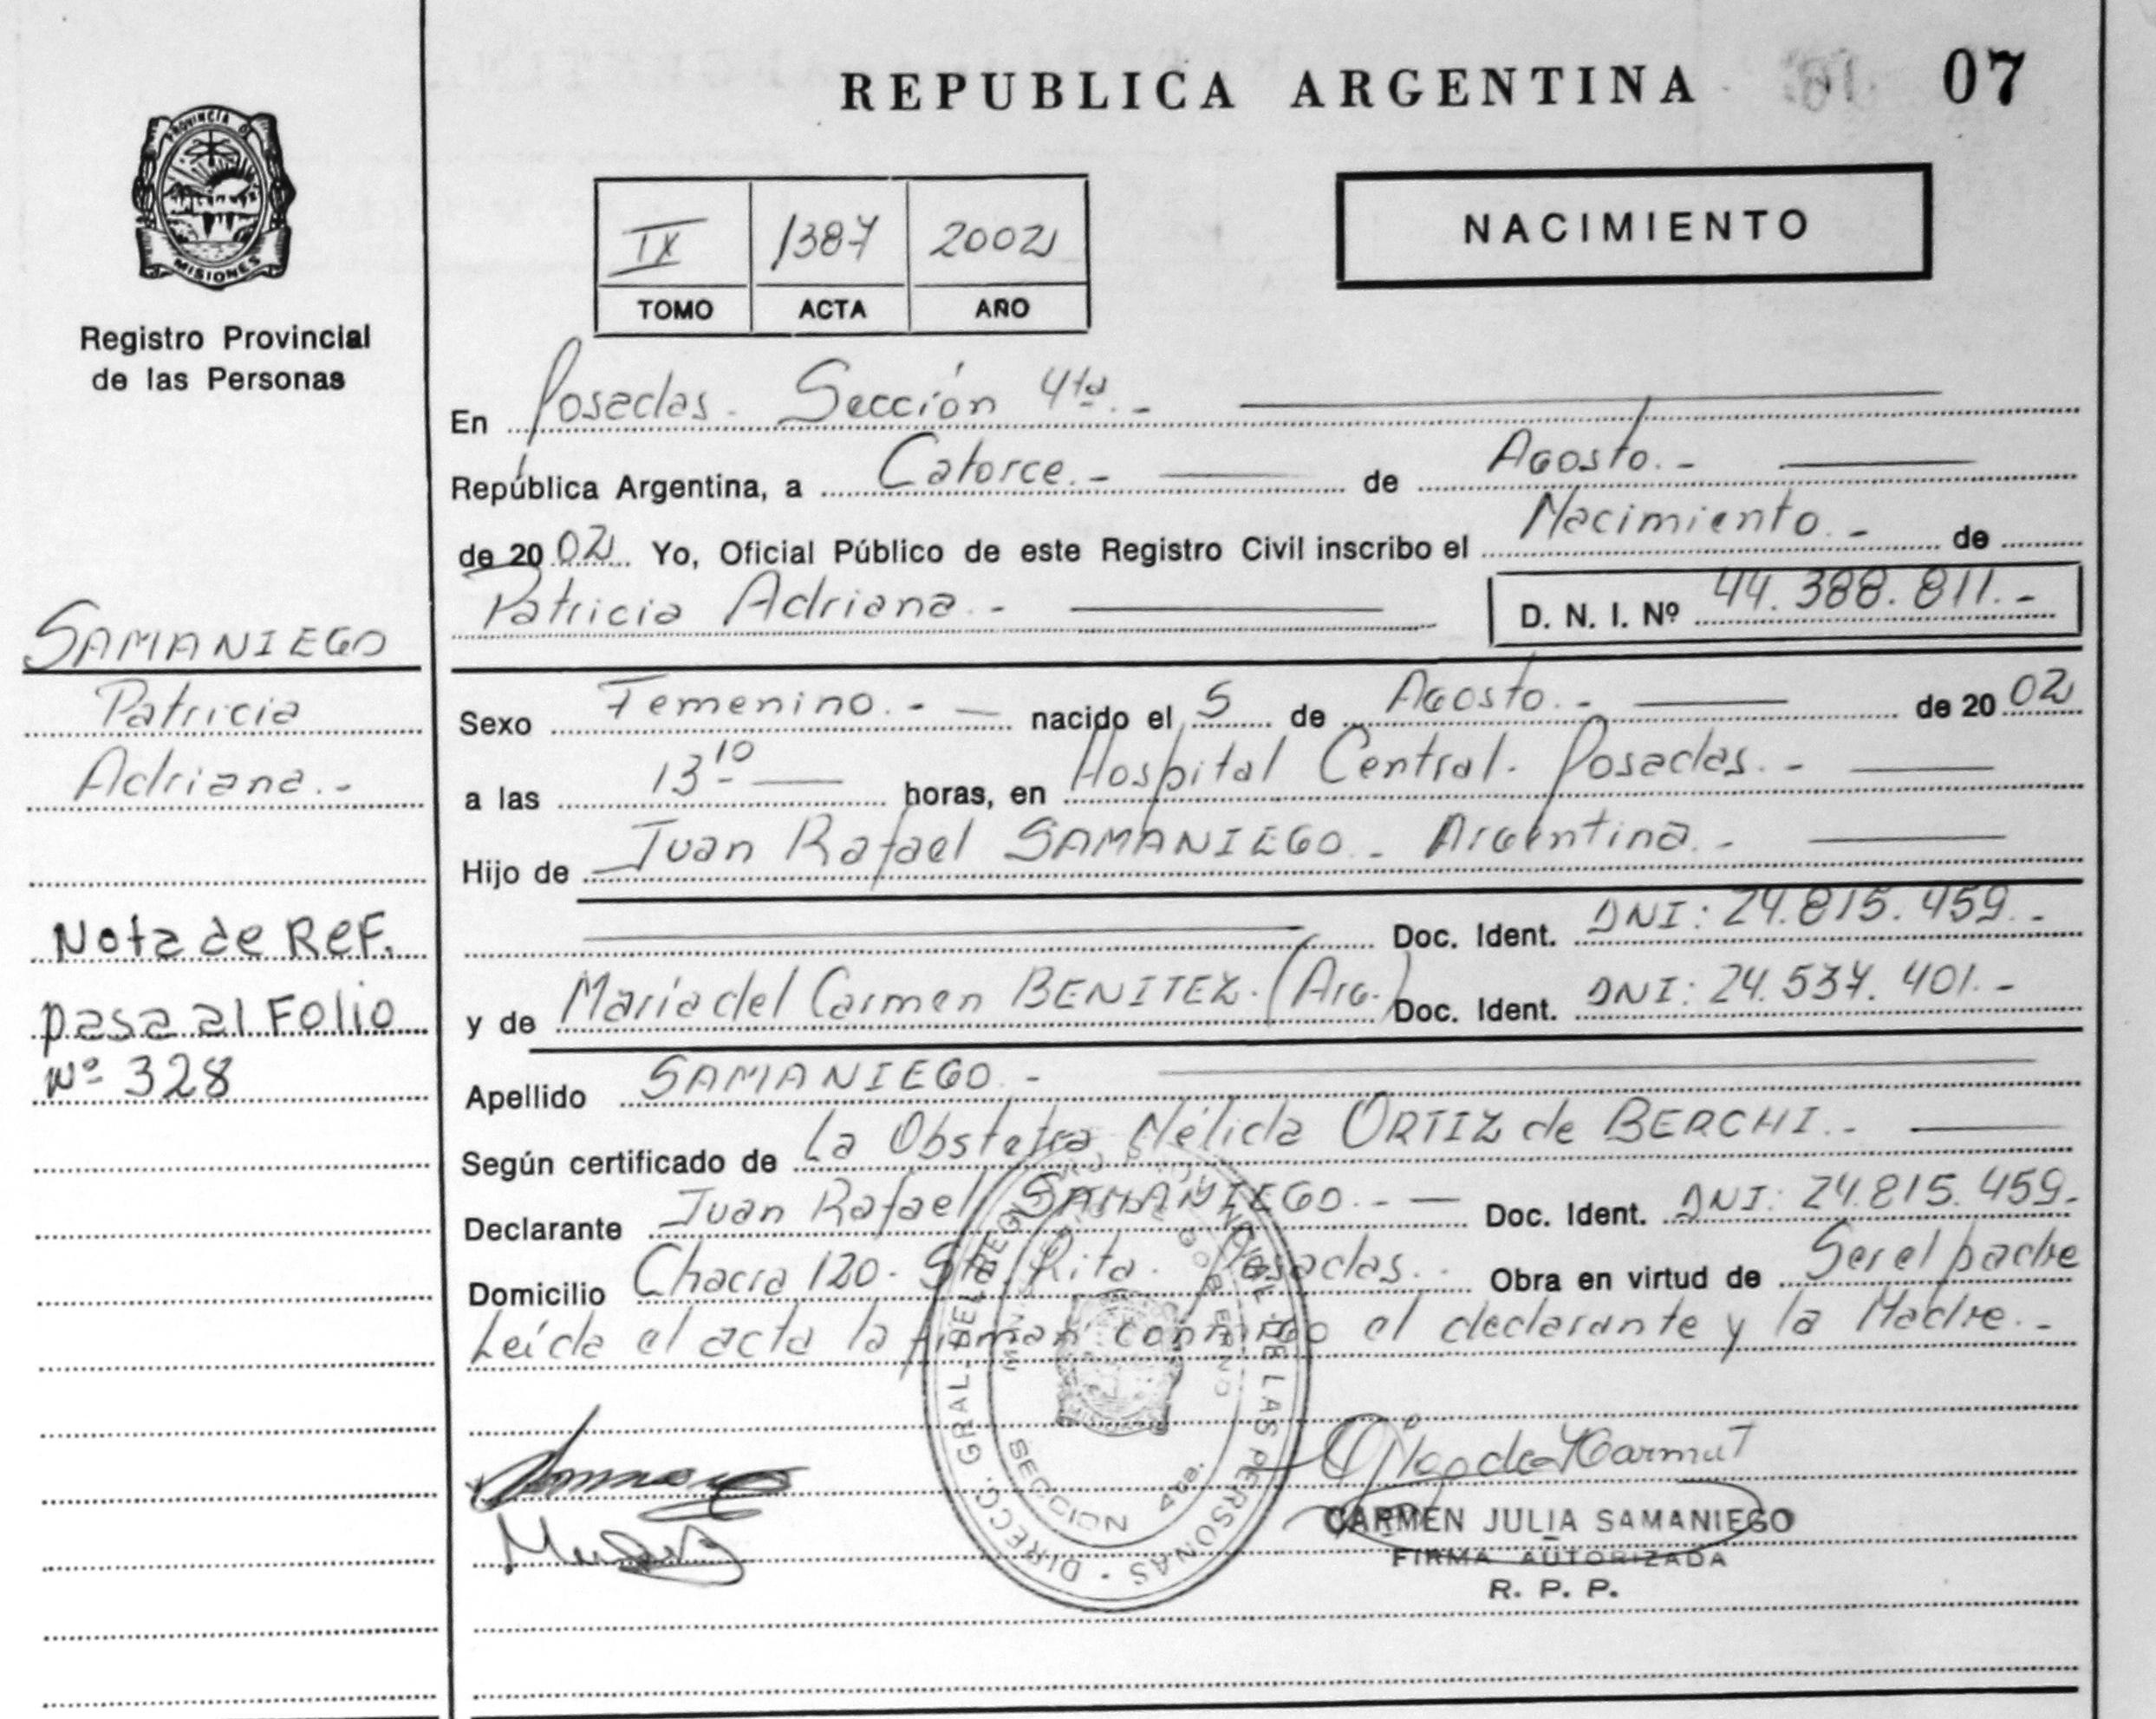 REPUBLICA ARGENTINA 07
PROVINCIA DE
MISIONES
Registro Provincial
de las Personas
NACIMIENTO
IX 1387 2002
TOMO ACTA AÑO
En Posadas. Sección 4ta.-
República Argentina, a Catorce.- de Agosto.-
de 20 02 Yo, Oficial Público de este Registro Civil inscribo el Nacimiento.- de
Patricia Adriana.- D. N. I. Nº 44.388.811.-
SAMANIEGO
Patricia
Adriana.-
Nota de REF.
pasa al Folio
Nº 328
Sexo Femenino.- nacido el 5 de Agosto.- de 20 02
a las 13 10 horas, en Hospital Central. Posadas.-
Hijo de Juan Rafael SAMANIEGO - Argentina.-
Doc. Ident. DNI: 24.815.459.-
y de Maria del Carmen BENITEZ. (Arg.) Doc. Ident. DNI: 24.537.401.-
Apellido SAMANIEGO.-
Según certificado de La Obstetra Nélida ORTIZ de BERCHI.-
Declarante Juan Rafael SAMANIEGO.- Doc. Ident. DNI: 24.815.459.
Domicilio Chacra 120. Sta. Rita. Posadas. Obra en virtud de Ser el padre
Leída el acta la firman conmigo el declarante y la Madre.-
DIRECC. GRAL. DEL REG. DE LAS PERSONAS
SECCION 4ta.
CARMEN JULIA SAMANIEGO
FIRMA AUTORIZADA
R. P. P.